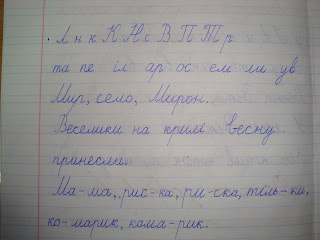 . Л н к К Н с В П Т р
та пе іл ар ос ем ли ув
Мир, село, Мирон.
Веселики на крилі весну
принесли.
Ма-ма, рис-ка, ри-ска, тіль-ки,
ко-марик, кома-рик.